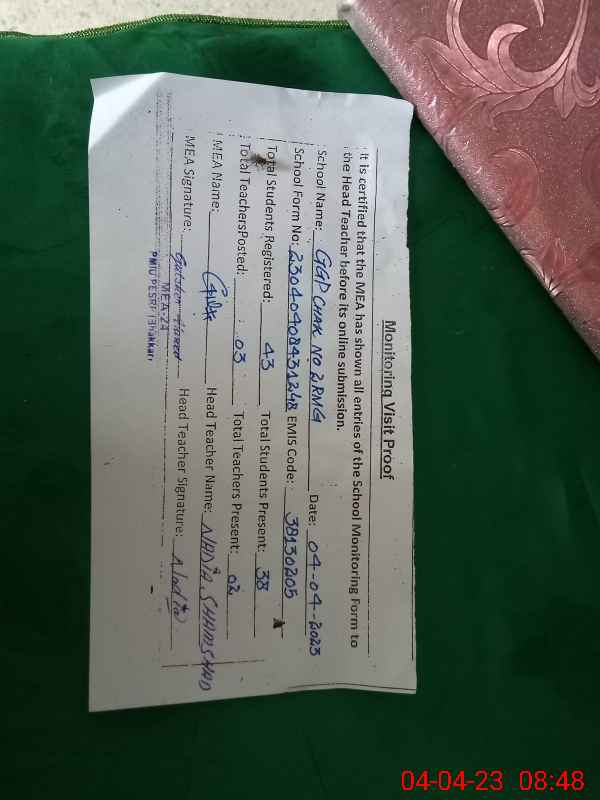 Monitoring Visit Proof
It is certified that the MEA has shown all entries of the School Monitoring Form to
the Head Teacher before its online submission.
School Name: GGP CHAK NO 2 RMG Date: 04-04-2023
School Form No: 23040408431248 EMIS Code: 38130205
Total Students Registered: 43 Total Students Present: 38
Total TeachersPosted: 03 Total Teachers Present: 02
MEA Name: Head Teacher Name: NADIA SHAMSHAD
MEA Signature: Head Teacher Signature: Nadia
MEA-24
PMIU PESRP (Bhakkar)
04-04-23 08:48